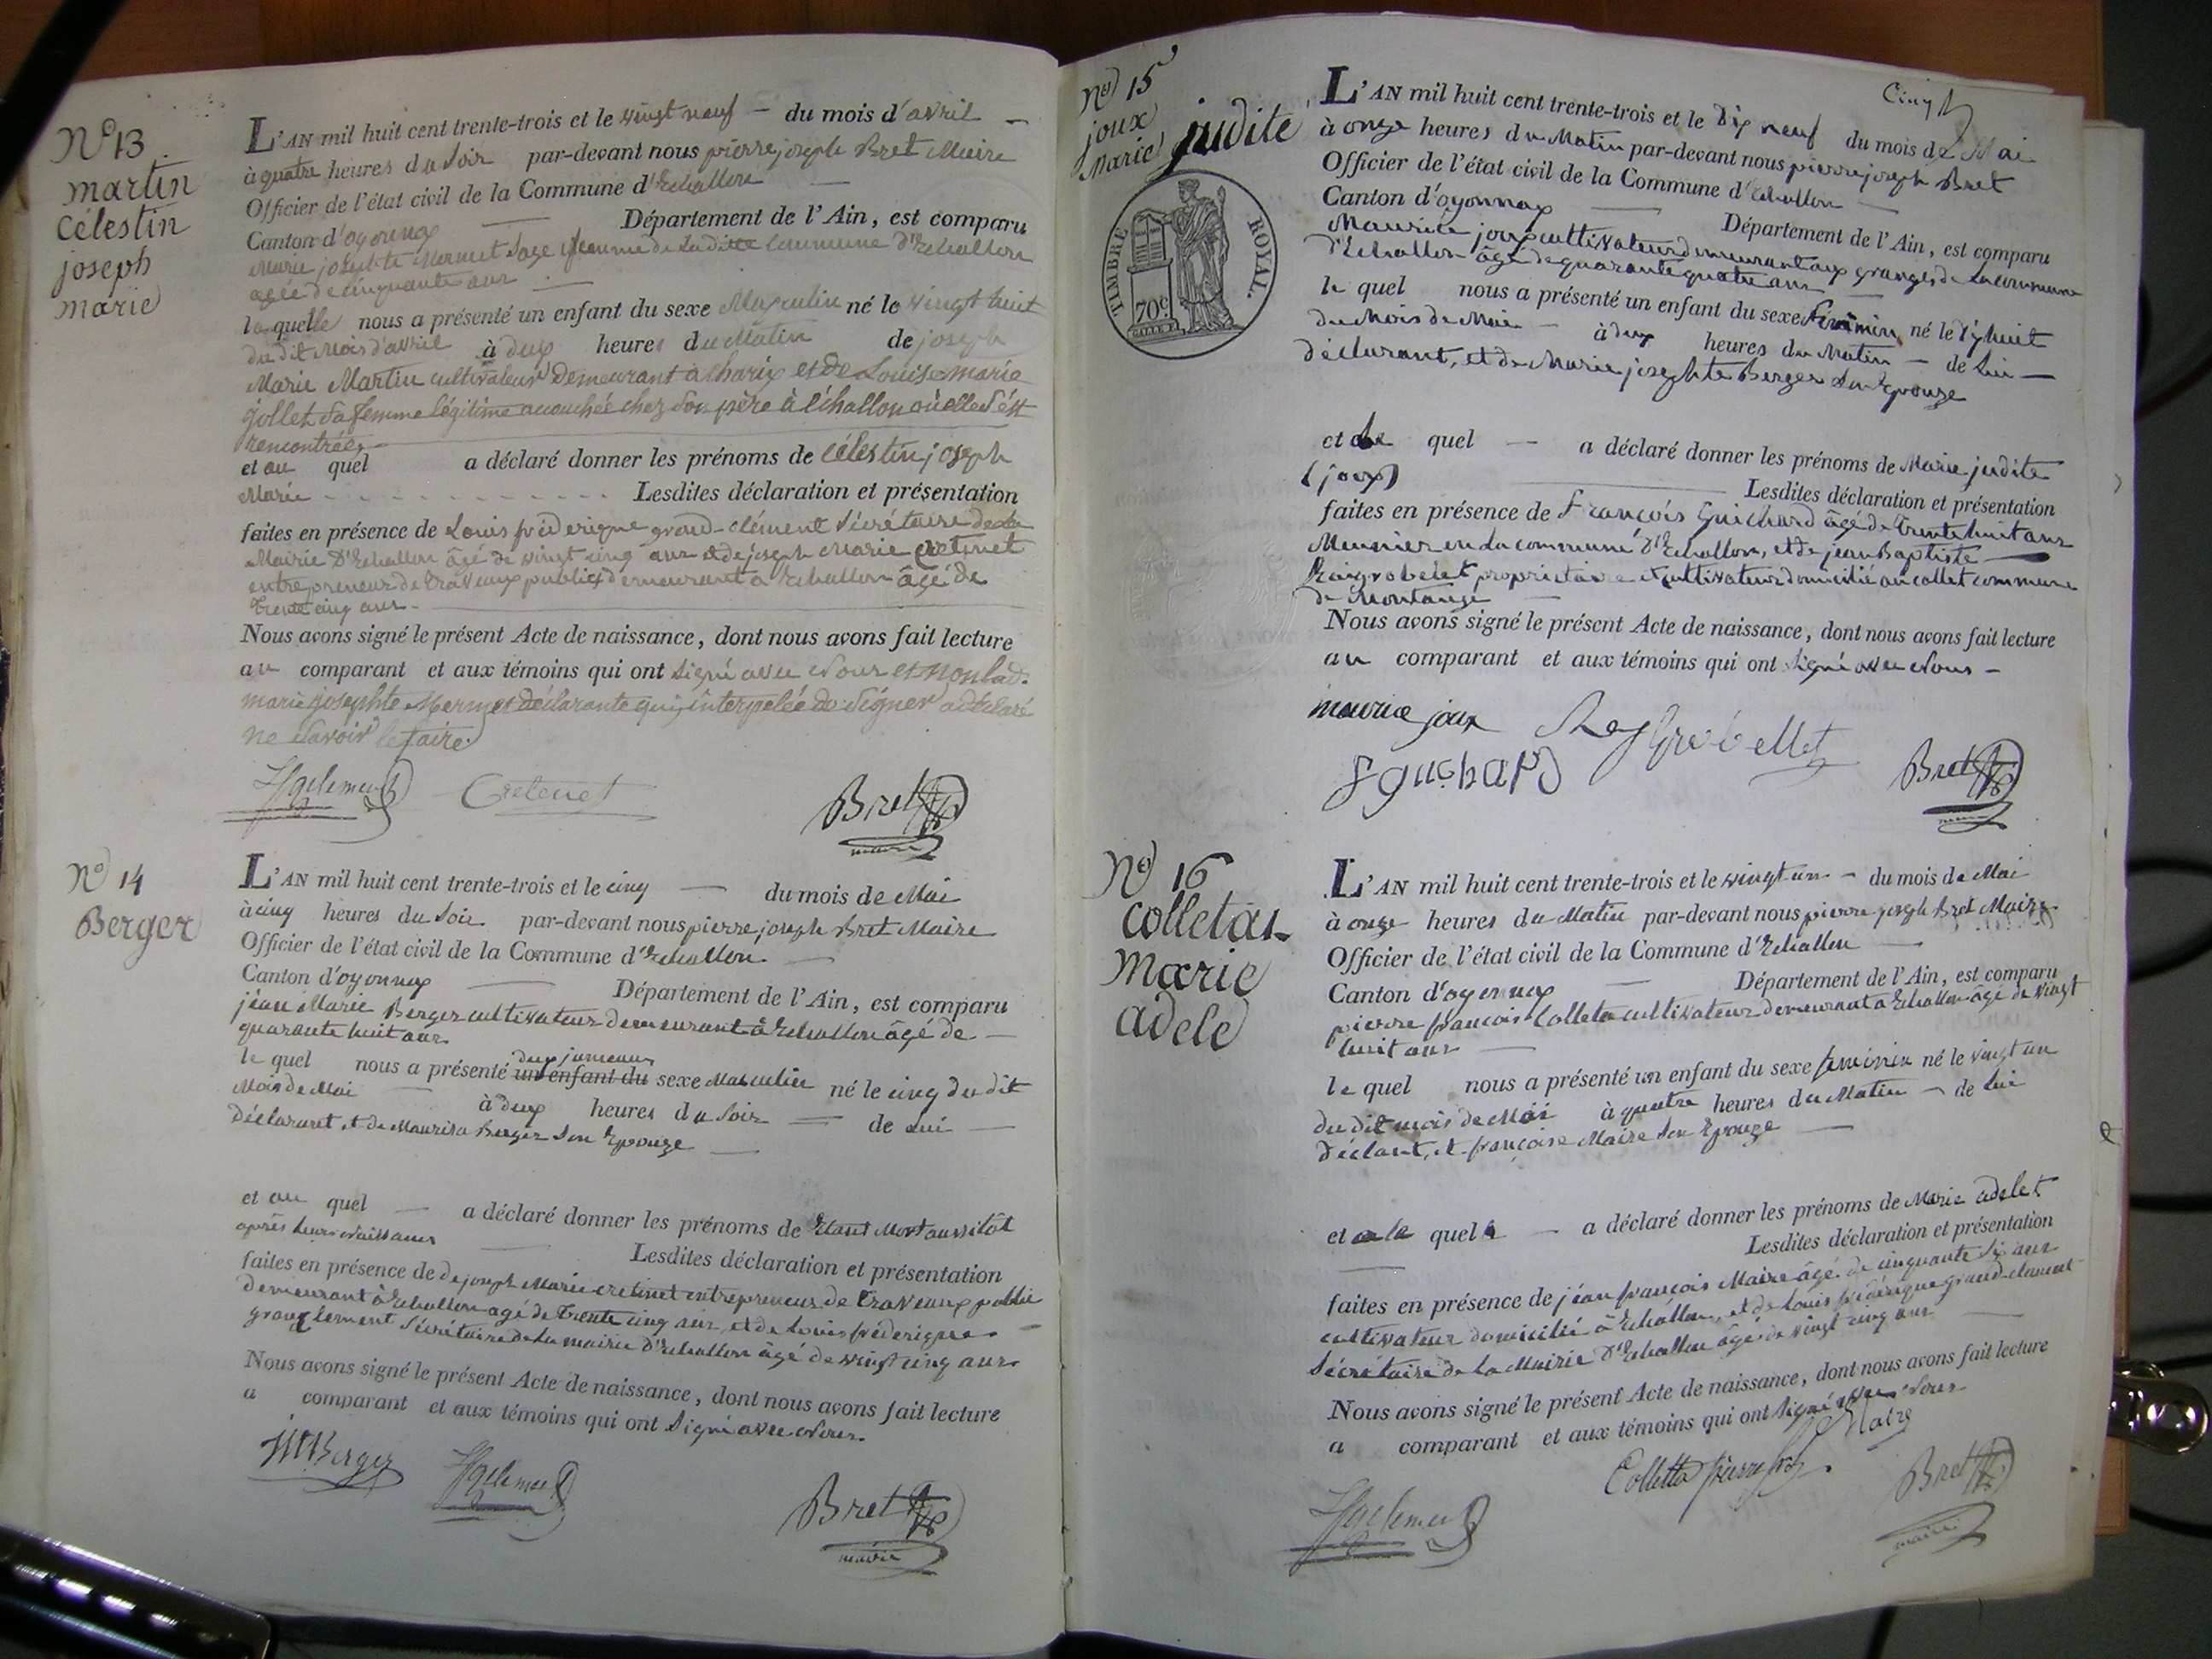 N° 13
martin
Célestin
joseph
marie
L'AN mil huit cent trente-trois et le vingt neuf — du mois d'avril —
à quatre heures du soir par-devant nous pierre joseph Bret Maire
Officier de l'état civil de la Commune d'Echallon —
Canton d'oyonnax — Département de l'Ain, est comparu
Marie josephte Mermet Sage femme de Laditte Commune d'Echallon
agée de cinquante ans —
la quelle nous a présenté un enfant du sexe Masculin né le vingt huit
du dit Mois d'avril à deux heures du Matin de joseph
Marie Martin cultivateur demeurant à charix et de Louise marie
jollet sa femme légitime accouchée chez son père à Echallon où elle s'est
rencontrée
et au quel a déclaré donner les prénoms de Célestin joseph
Marie - - - - - - - - - - Lesdites déclaration et présentation
faites en présence de Louis fréderique grand-clément Sécrétaire de la
Mairie d'Echallon âgé de vingt cinq ans et de joseph Marie Cretinet
entrepreneur de travaux publics demeurant a Echallon âgé de
trente cinq ans. —
Nous avons signé le présent Acte de naissance, dont nous avons fait lecture
au comparant et aux témoins qui ont signé avec Nous et non lad.
marie josephte Mermet déclarante qui, interpelée de signer a déclaré
ne savoir le faire.
Cretenet
Bret
maire
N° 14
Berger
L'AN mil huit cent trente-trois et le cinq — du mois de Mai
à cinq heures du soir par-devant nous pierre joseph Bret Maire
Officier de l'état civil de la Commune d'Echallon —
Canton d'oyonnax — Département de l'Ain, est comparu
jean Marie Berger cultivateur demeurant à Echallon âgé de —
quarante huit ans
deux jumeaux
le quel nous a présenté un enfant du sexe Masculin né le cinq du dit
Mois de Mai — à deux heures du soir = de Lui —
Déclarant et de Mauriza Berger son Epouze —
et au quel — a déclaré donner les prénoms de Etant Mort aussitôt
après leurs Naissances — Lesdites déclaration et présentation
faites en présence de de joseph Marie cretinet entrepreneur de travaux public
demeurant à Echallon agé de trente cinq ans, et de Louis fréderique —
grandclement Sécrétaire de la mairie d'Echallon âgé de vingt cinq ans
Nous avons signé le présent Acte de naissance, dont nous avons fait lecture
a comparant et aux témoins qui ont signé avec Nous.
JMBerger
Bret
maire
N° 15
joux
Marie judite
TIMBRE ROYAL.
70c
Cinq
L'AN mil huit cent trente-trois et le Dix neuf du mois de Mai
à onze heures du Matin par-devant nous pierre joseph Bret
Officier de l'état civil de la Commune d'Echallon —
Canton d'oyonnax — Département de l'Ain, est comparu
Maurice joux cultivateur demeurant aux granges de la commune
d'Echallon âgé de quarante quatre ans —
le quel nous a présenté un enfant du sexe féminin né le dixhuit
du Mois de Mai — à deux heures du Matin — de Lui —
déclarant, et de Marie josephte Berger son Epouze
et de quel — a déclaré donner les prénoms de Marie judite
(joux) — Lesdites déclaration et présentation
faites en présence de François Guichard âgé de trente huit ans
Meunier en la commune d'Echallon, et de jean Baptiste —
Reigrobelet propriétaire et cultivateur domicilié au collet commune
de Montange —
Nous avons signé le présent Acte de naissance, dont nous avons fait lecture
au comparant et aux témoins qui ont signé avec Nous —
maurice joux
Bret
N° 16
Colletaz
Marie
adele
L'AN mil huit cent trente-trois et le vingt un — du mois de Mai
à onze heures du Matin par-devant nous pierre joseph Bret Maire
Officier de l'état civil de la Commune d'Echallon —
Canton d'oyonnax — Département de l'Ain, est comparu
pierre françois Colleta cultivateur demeurant a Echallon âgé de vingt
huit ans —
le quel nous a présenté un enfant du sexe feminin né le vingt un
du dit mois de Mai à quatre heures du Matin — de Lui
Déclant, et françoise Maire son Epouze —
et a la quele — a déclaré donner les prénoms de Marie adele
— Lesdites déclaration et présentation
faites en présence de jean françois Maire âgé de cinquante six ans
cultivateur domicilié à Echallon, et de Louis fréderique grand-clement
Sécrétaire de la Mairie d'Echallon âgé de vingt cinq ans —
Nous avons signé le présent Acte de naissance, dont nous avons fait lecture
a comparant et aux témoins qui ont signé avec Nous
Maire
Colletta pierre
Bret
maire